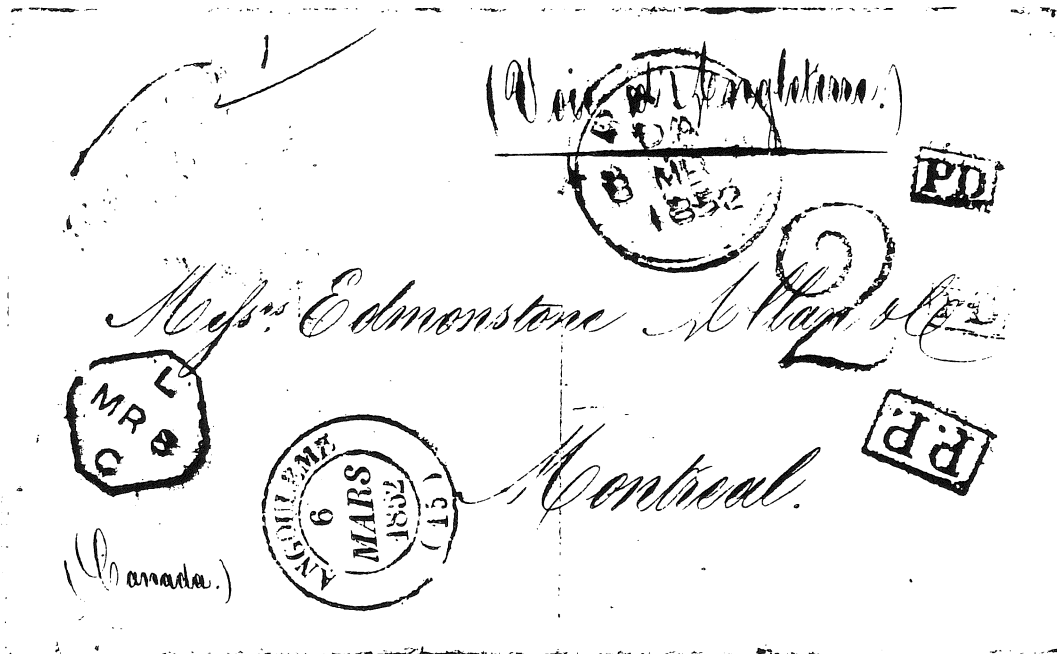 (Voie d'Angleterre.)
PD
1852
2
Messrs. Edmonstone Allan & Co
L
MR 8
C
P.P.
ANGOULEME (15)
6
MARS
1852
Montreal.
(Canada.)